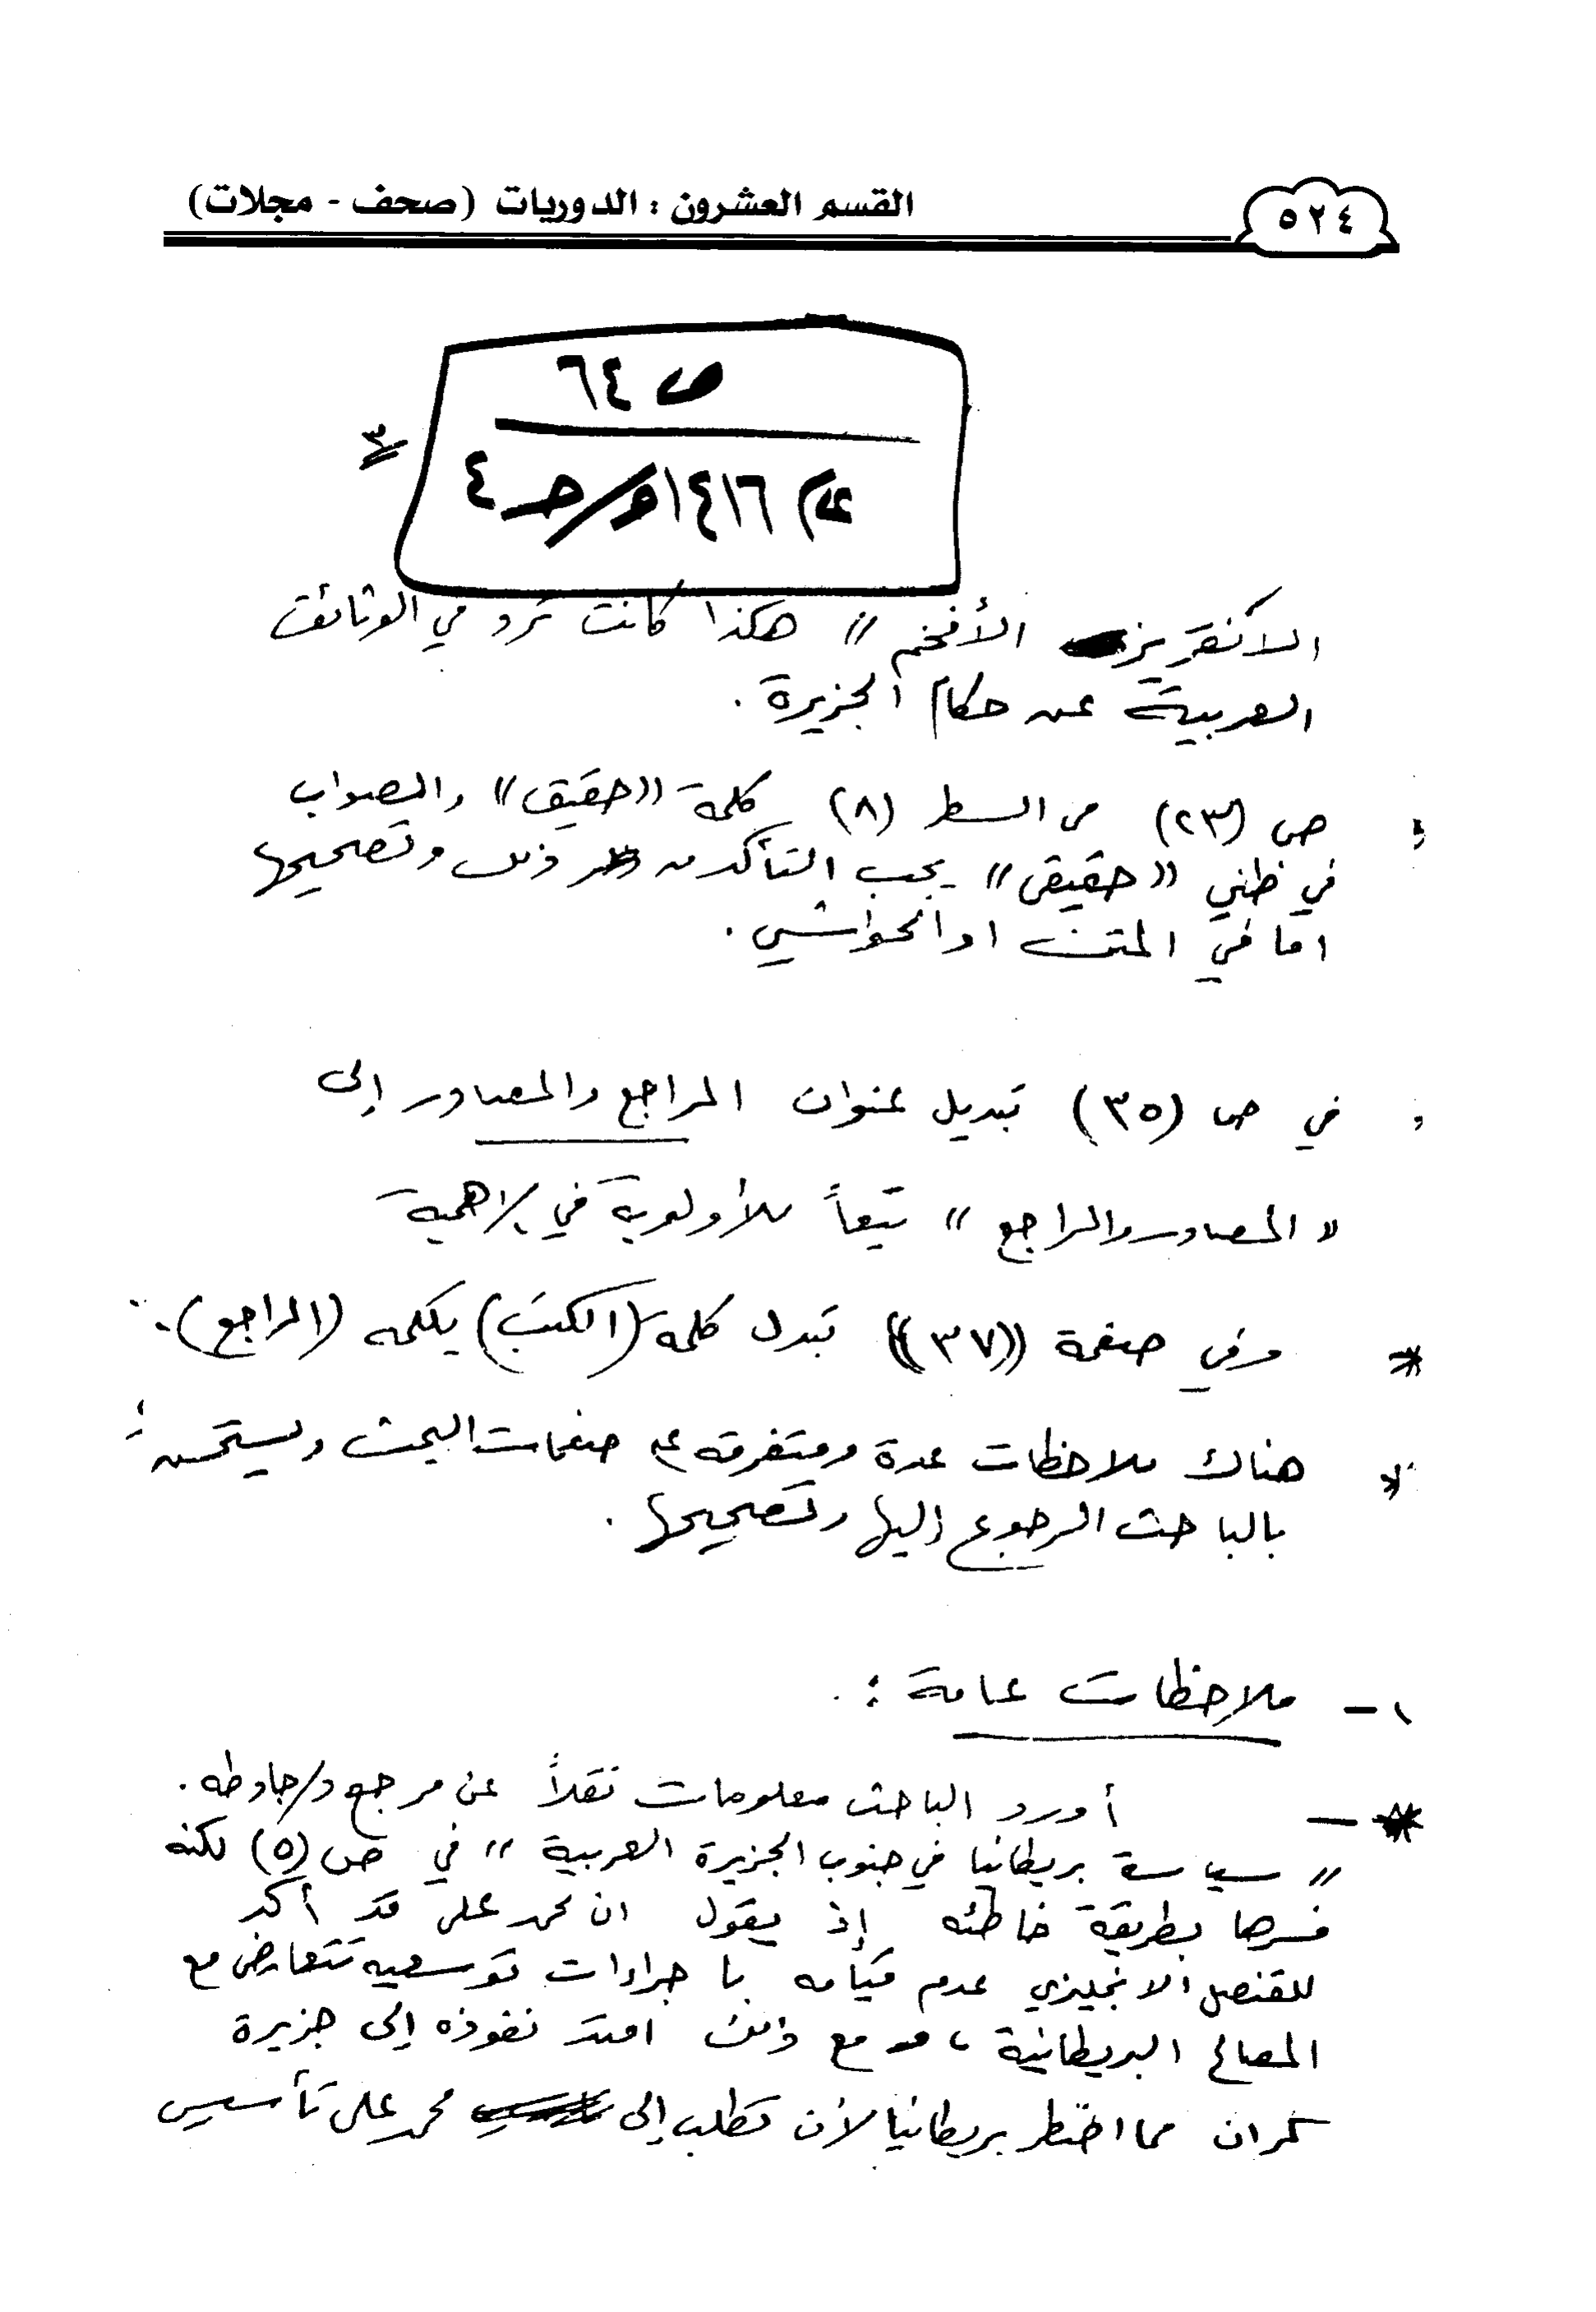 ٥٢٤
القسم العشرون : الدوريات (صحف - مجلات)
ص ٦٤
عام ١٤١٦ و/ح ٤
٣
الانقريز الأفخم" هكذا كانت ترد في الوثائق
العربية عن حكام الجزيرة .
ص (٢٣) من السطر (٨) كلمة "حقيق" والصواب
في ظني "حقيقى" يجب التأكد من ذلك وتصحيحها
اما في المتن او الحواشي .
في ص (٣٥) تبديل عنوان المراجع والمصادر إلى
" المصادر والمراجع " تبعاً للأولوية في الاهمية
* وفي صفحة ((٣٧)) تبدل كلمة (الكتب) بكلمه (المراجع) .
* هناك ملاحظات عدة ومتفرقه على صفحات البحث ويستحسن
بالباحث الرجوع إليها وتصحيحها .
١ - ملاحظات عامة :
* - أورد الباحث معلومات نقلاً عن مرجع د/جاد طه .
" سياسة بريطانيا في جنوب الجزيرة العربية " في ص (٥) لكنه
فسرها بطريقة خاطئه إذ يقول ان محمد على قد أكد
للقنصل الانجليزي عدم قيامه باجراءات توسعيه تتعارض مع
المصالح البريطانية ، مع ذلك امتد نفوذه إلى جزيرة
كمران مما اضطر بريطانيا لأن تطلب إلى محمد على تأسيس